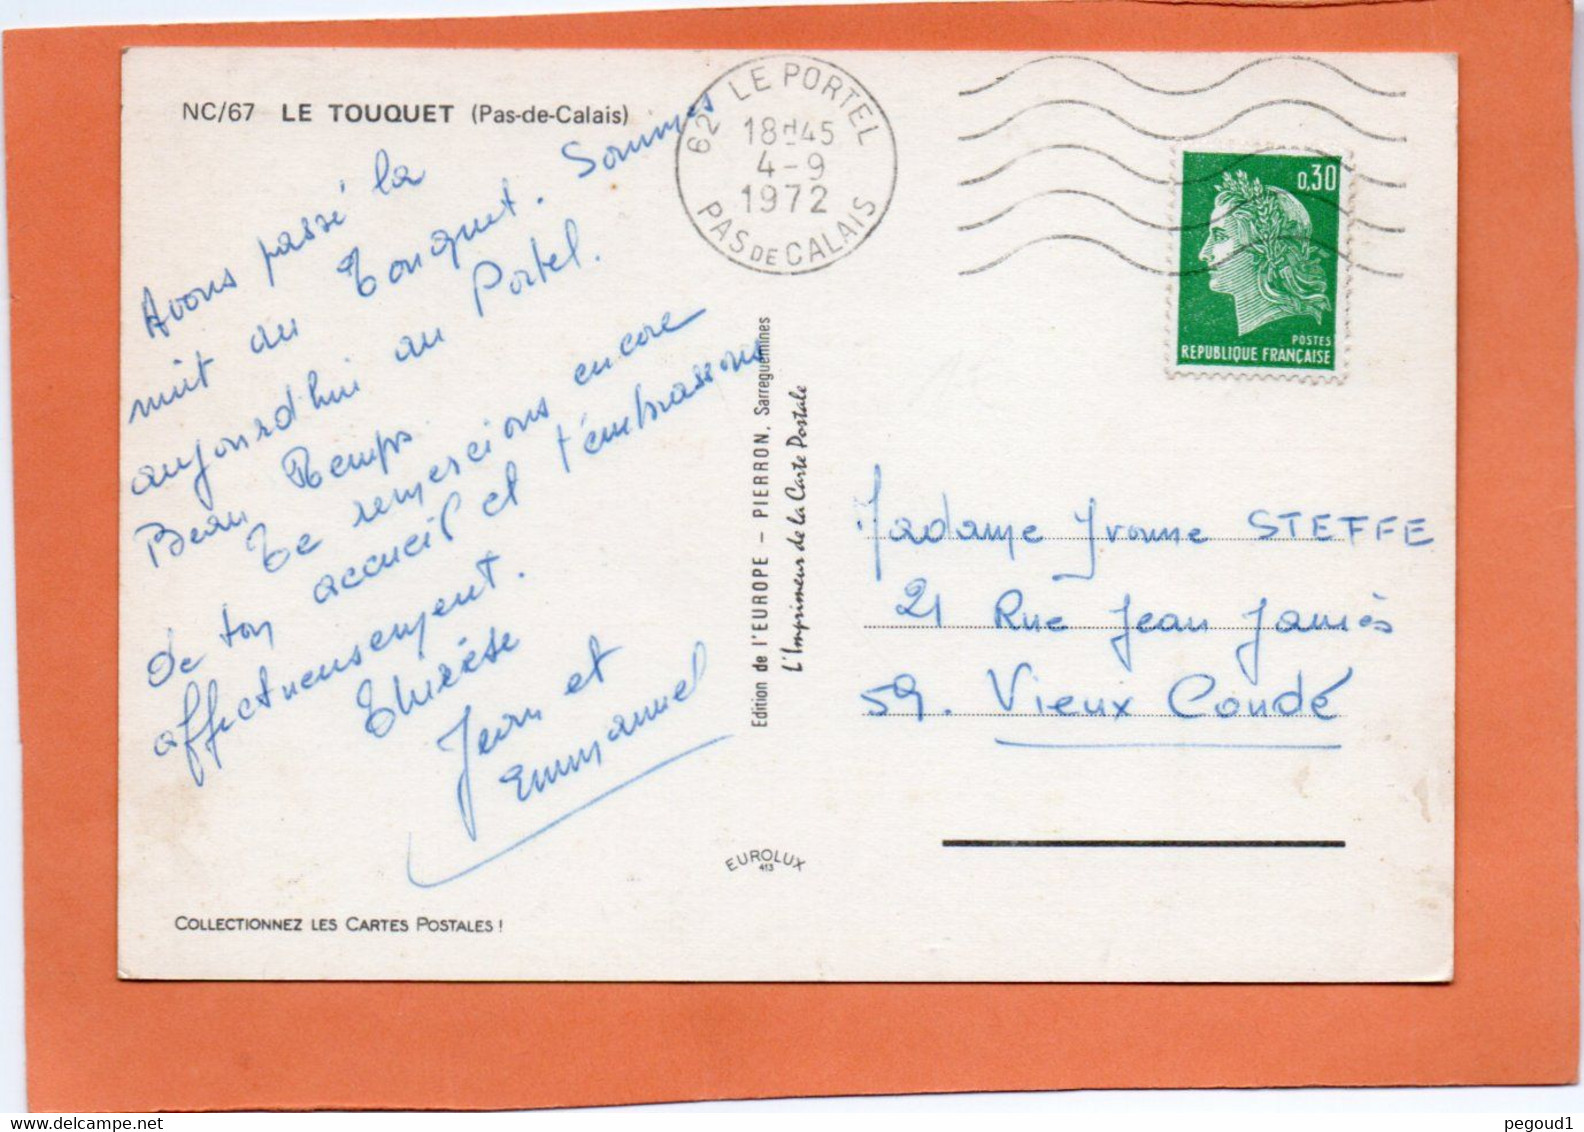 NC/67 LE TOUQUET (Pas-de-Calais)
Avons passé la
nuit au Touquet. Sommes
aujourd'hui au Portel.
Beau Temps.
Te remercions encore
de ton accueil et t'embrassons
affectueusement.
Thérèse
Jean et
Emmanuel
COLLECTIONNEZ LES CARTES POSTALES !
62 LE PORTEL
18H45
4-9
1972
PAS DE CALAIS
Edition de l'EUROPE - PIERRON, Sarreguemines
L'Imprimeur de la Carte Postale
EUROLUX
413
0,30
POSTES
REPUBLIQUE FRANÇAISE
Madame Yvonne STEFFE
21 Rue Jean Jaurès
59. Vieux Condé
www.delcampe.net
pegoud1